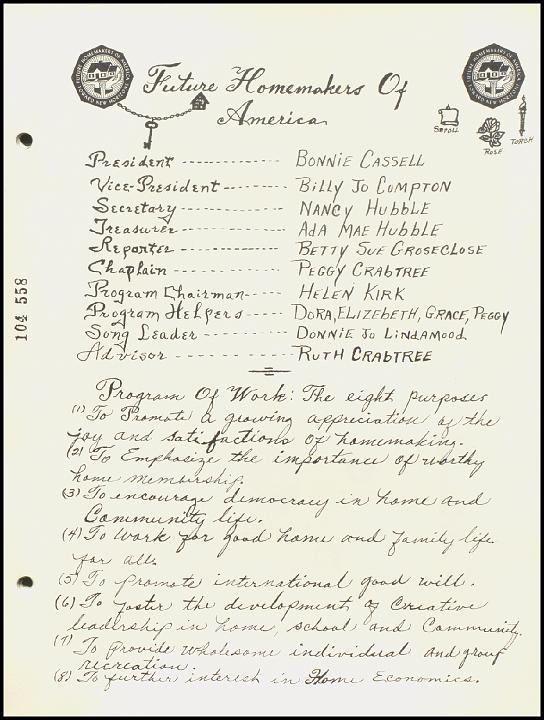 Future Homemakers Of
America
SCROLL
ROSE
TORCH
President ---------- BONNIE CASSELL
Vice-President ------- BILLY JO COMPTON
Secretary ---------- NANCY HUBBLE
Treasurer ---------- ADA MAE HUBBLE
Reporter ---------- BETTY SUE GROSECLOSE
Chaplain ---------- PEGGY CRABTREE
Program Chairman ----- HELEN KIRK
Program Helpers ----- DORA, ELIZEBETH, GRACE, PEGGY
Song Leader -------- DONNIE JO LINDAMOOD
Advisor ---------- RUTH CRABTREE
104 558
Program Of Work: The eight purposes
(1) To Promote a growing appreciation of the
joy and satisfactions of homemaking.
(2) To Emphasize the importance of worthy
home membership.
(3) To encourage democracy in home and
Community life.
(4) To work for good home and family life
for all.
(5) To promote international good will.
(6) To foster the development of Creative
leadership in home, school and Community.
(7) To provide wholesome individual and group
recreation.
(8) To further interest in Home Economics.